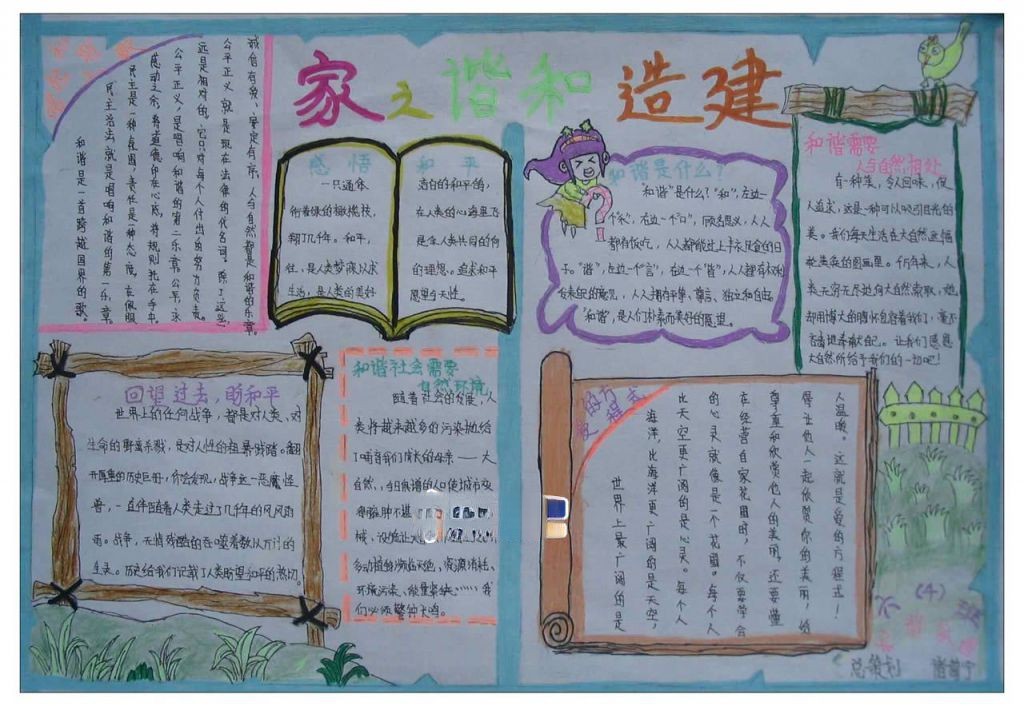 家之谐和造建
诚信有爱、安定有序、人与自然都是和谐的乐章。
公平正义,就是现在法律的代名词。除了这些,
远是相对的,它只对每个人付出的努力负责。
公平正义,是唱响和谐的第二乐章。公平,永
感动之余,将道德印在心底,将规则扎在手中。
民主是一种氛围,责任是一种态度,在佩服
民主法治,就是唱响和谐的第一乐章。
和谐是一首跨越国界的歌。
感悟和平
一只通体
洁白的和平鸽,
衔着绿的橄榄枝,
在人类的心海里飞
翔了几千年。和平,
是全人类共同的向
往,是人类梦寐以求
的理想。追求和平
生活,是人类的美好
愿望与天性。
和谐是什么?
“和谐”是什么?“和”,左边一
个“禾”,右边一个“口”,顾名思义,人人
都有饭吃,人人都能过上丰衣足食的日
子。“谐”,左边一个“言”,右边一个“皆”,人人都有
自己的意见,人人拥有平等、尊言、独立和自由。
“和谐”,是人们朴素而美好的愿望。
和谐需要
人与自然相处
有一种美,令人回味,促
人追求,这是一种可以吸引目光的
美。我们每天生活在大自然这幅
美的图画里。千百年来,人
类无穷无尽地向大自然索取,她
却用博大的胸怀包容着我们,毫不
吝啬地奉献自己。让我们感恩
大自然所给予我们的一切吧!
回望过去,盼和平
世界上的任何战争,都是对人类、对
生命的野蛮杀戮,是对人性的粗暴践踏。翻
开厚重的历史巨册,你会发现,战争这一恶魔怪
兽,一直伴随着人类走过了几千年的风风雨
雨。战争,无情残酷的吞噬着数以万计的
生灵。历史给我们记载了人类盼望和平的热切。
和谐社会需要
自然环境
随着社会的发展,人
类将越来越多的污染抛给
了哺育我们成长的母亲——大
自然,今日浪潮的人口使城市变
得臃肿不堪
环境污染、能量紧缺……我
们必须警钟大鸣。
爱的方程式
人温暖。这就是爱的方程式!
得让他人一起欣赏你的美丽,给
尊重和欣赏他人的美丽,还要懂
在经营自家花园时,不仅要学会
的心灵就像是一个花园。每个人
比天空更广阔的是心灵。每个人
海洋,比海洋更广阔的是天空,
世界上最广阔的是
六(4)班
总策划